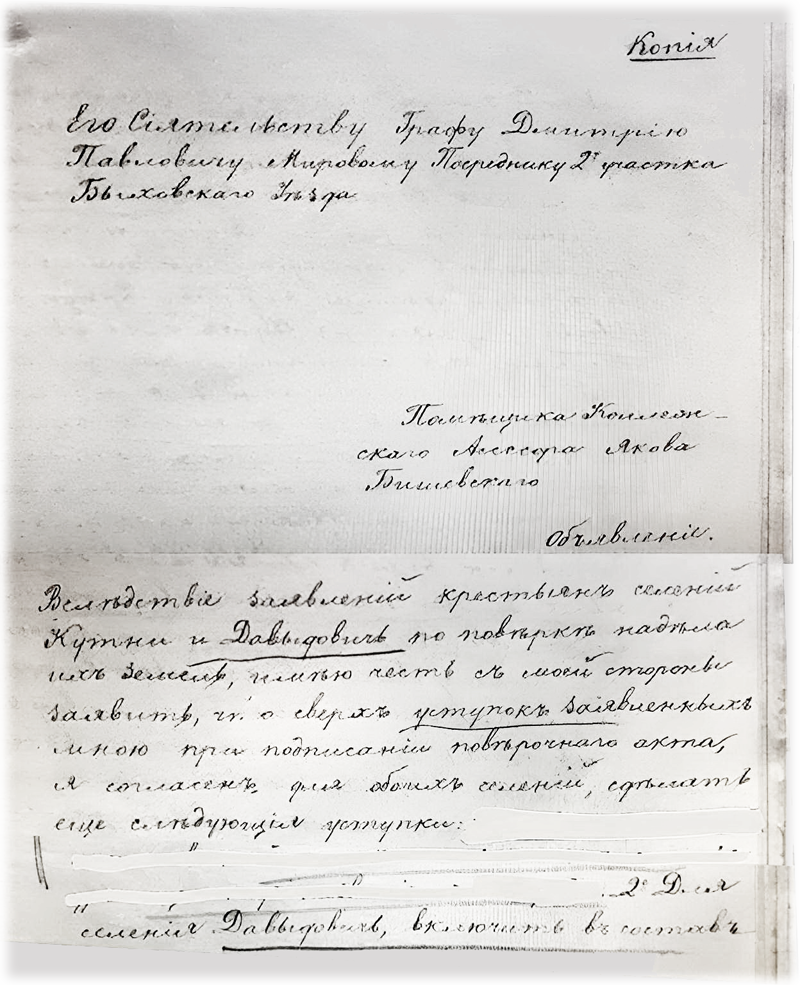 Копія
Его Сіятельству Графу Дмитрію
Павловичу Мировому Посреднику 2го участка
Быховскаго Уѣзда
Помѣщика Коллеж-
скаго Ассесора Якова
Бишевскаго
Объявленіе.
Вслѣдствіе заявленій крестьянъ селеній
Кутни и Давыдовичъ по повѣркѣ надѣла
ихъ землею, имѣю честь съ моей стороны
заявить, что сверхъ уступокъ заявленныхъ
мною при подписаніи повѣрочнаго акта,
я согласенъ для обоихъ селеній, сдѣлать
еще слѣдующія уступки:
2е Для
селенія Давыдовичъ, включить въ составъ